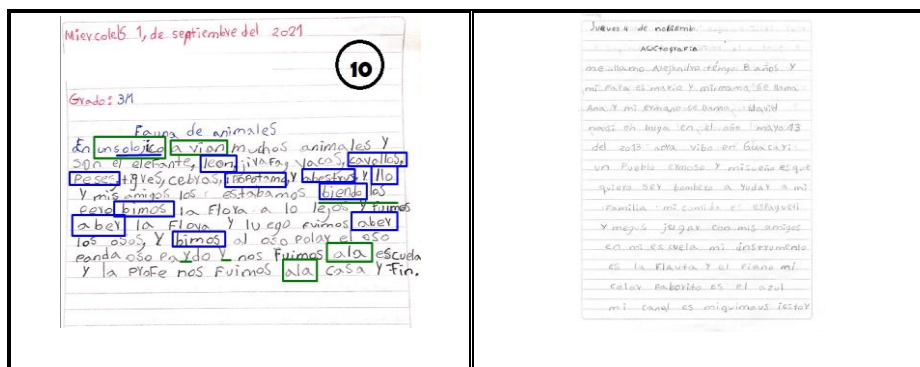 Miercoles 1, de septiembre del 2021
10
Grado: 3M
Fauna de animales
En unsolojico a vian muchos animales y
son el elefante, leon, jirafa, vacas, cavallos,
Peses, tigres, cebras, ipopotamo, y abestrus y llo
y mis amigos los estabamos biendo los
pero bimos la Flora a lo lejos y Fuimos
aber la Flora y luego Fuimos aber
los osos, y bimos al oso polar el oso
panda oso pardo y nos Fuimos ala escuela
y la profe nos Fuimos ala casa y Fin.
Jueves 4 de nobiemb
me llamo Alejandro tengo 8 años y
mi papa es mario y mi mama se llama
Ana y mi ermano se llama David
nasi en buga en el año mayo 13
del 2013 aora vibo en Guacari
un Pueblo ermoso y misueño esque
quiero ser bombero a yudar a mi
Familia mi comida es espagueti
y megus jugar con mis amigos
en mi escuela mi instrumento
es la Flauta y el Piano mi
color faborito es el azul
mi canal es